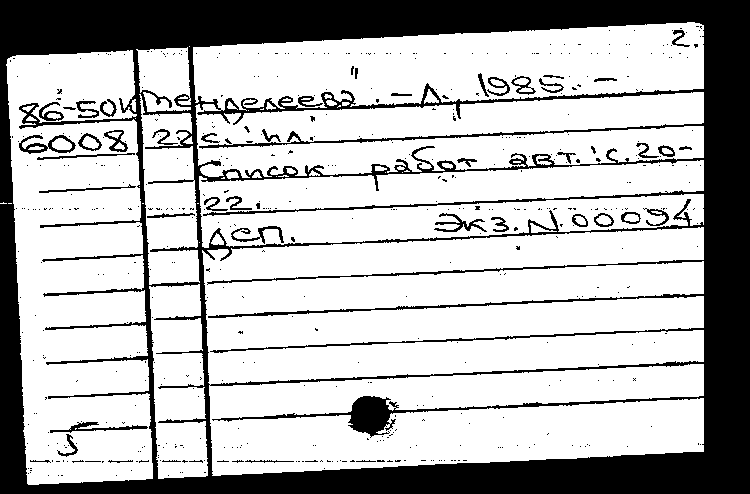 2.
86-50к Менделеева". – Л., 1985. –
6008 22 с.: ил.
Список работ авт.: с. 20-
22.
ДСП. Экз. N. 00094.
5